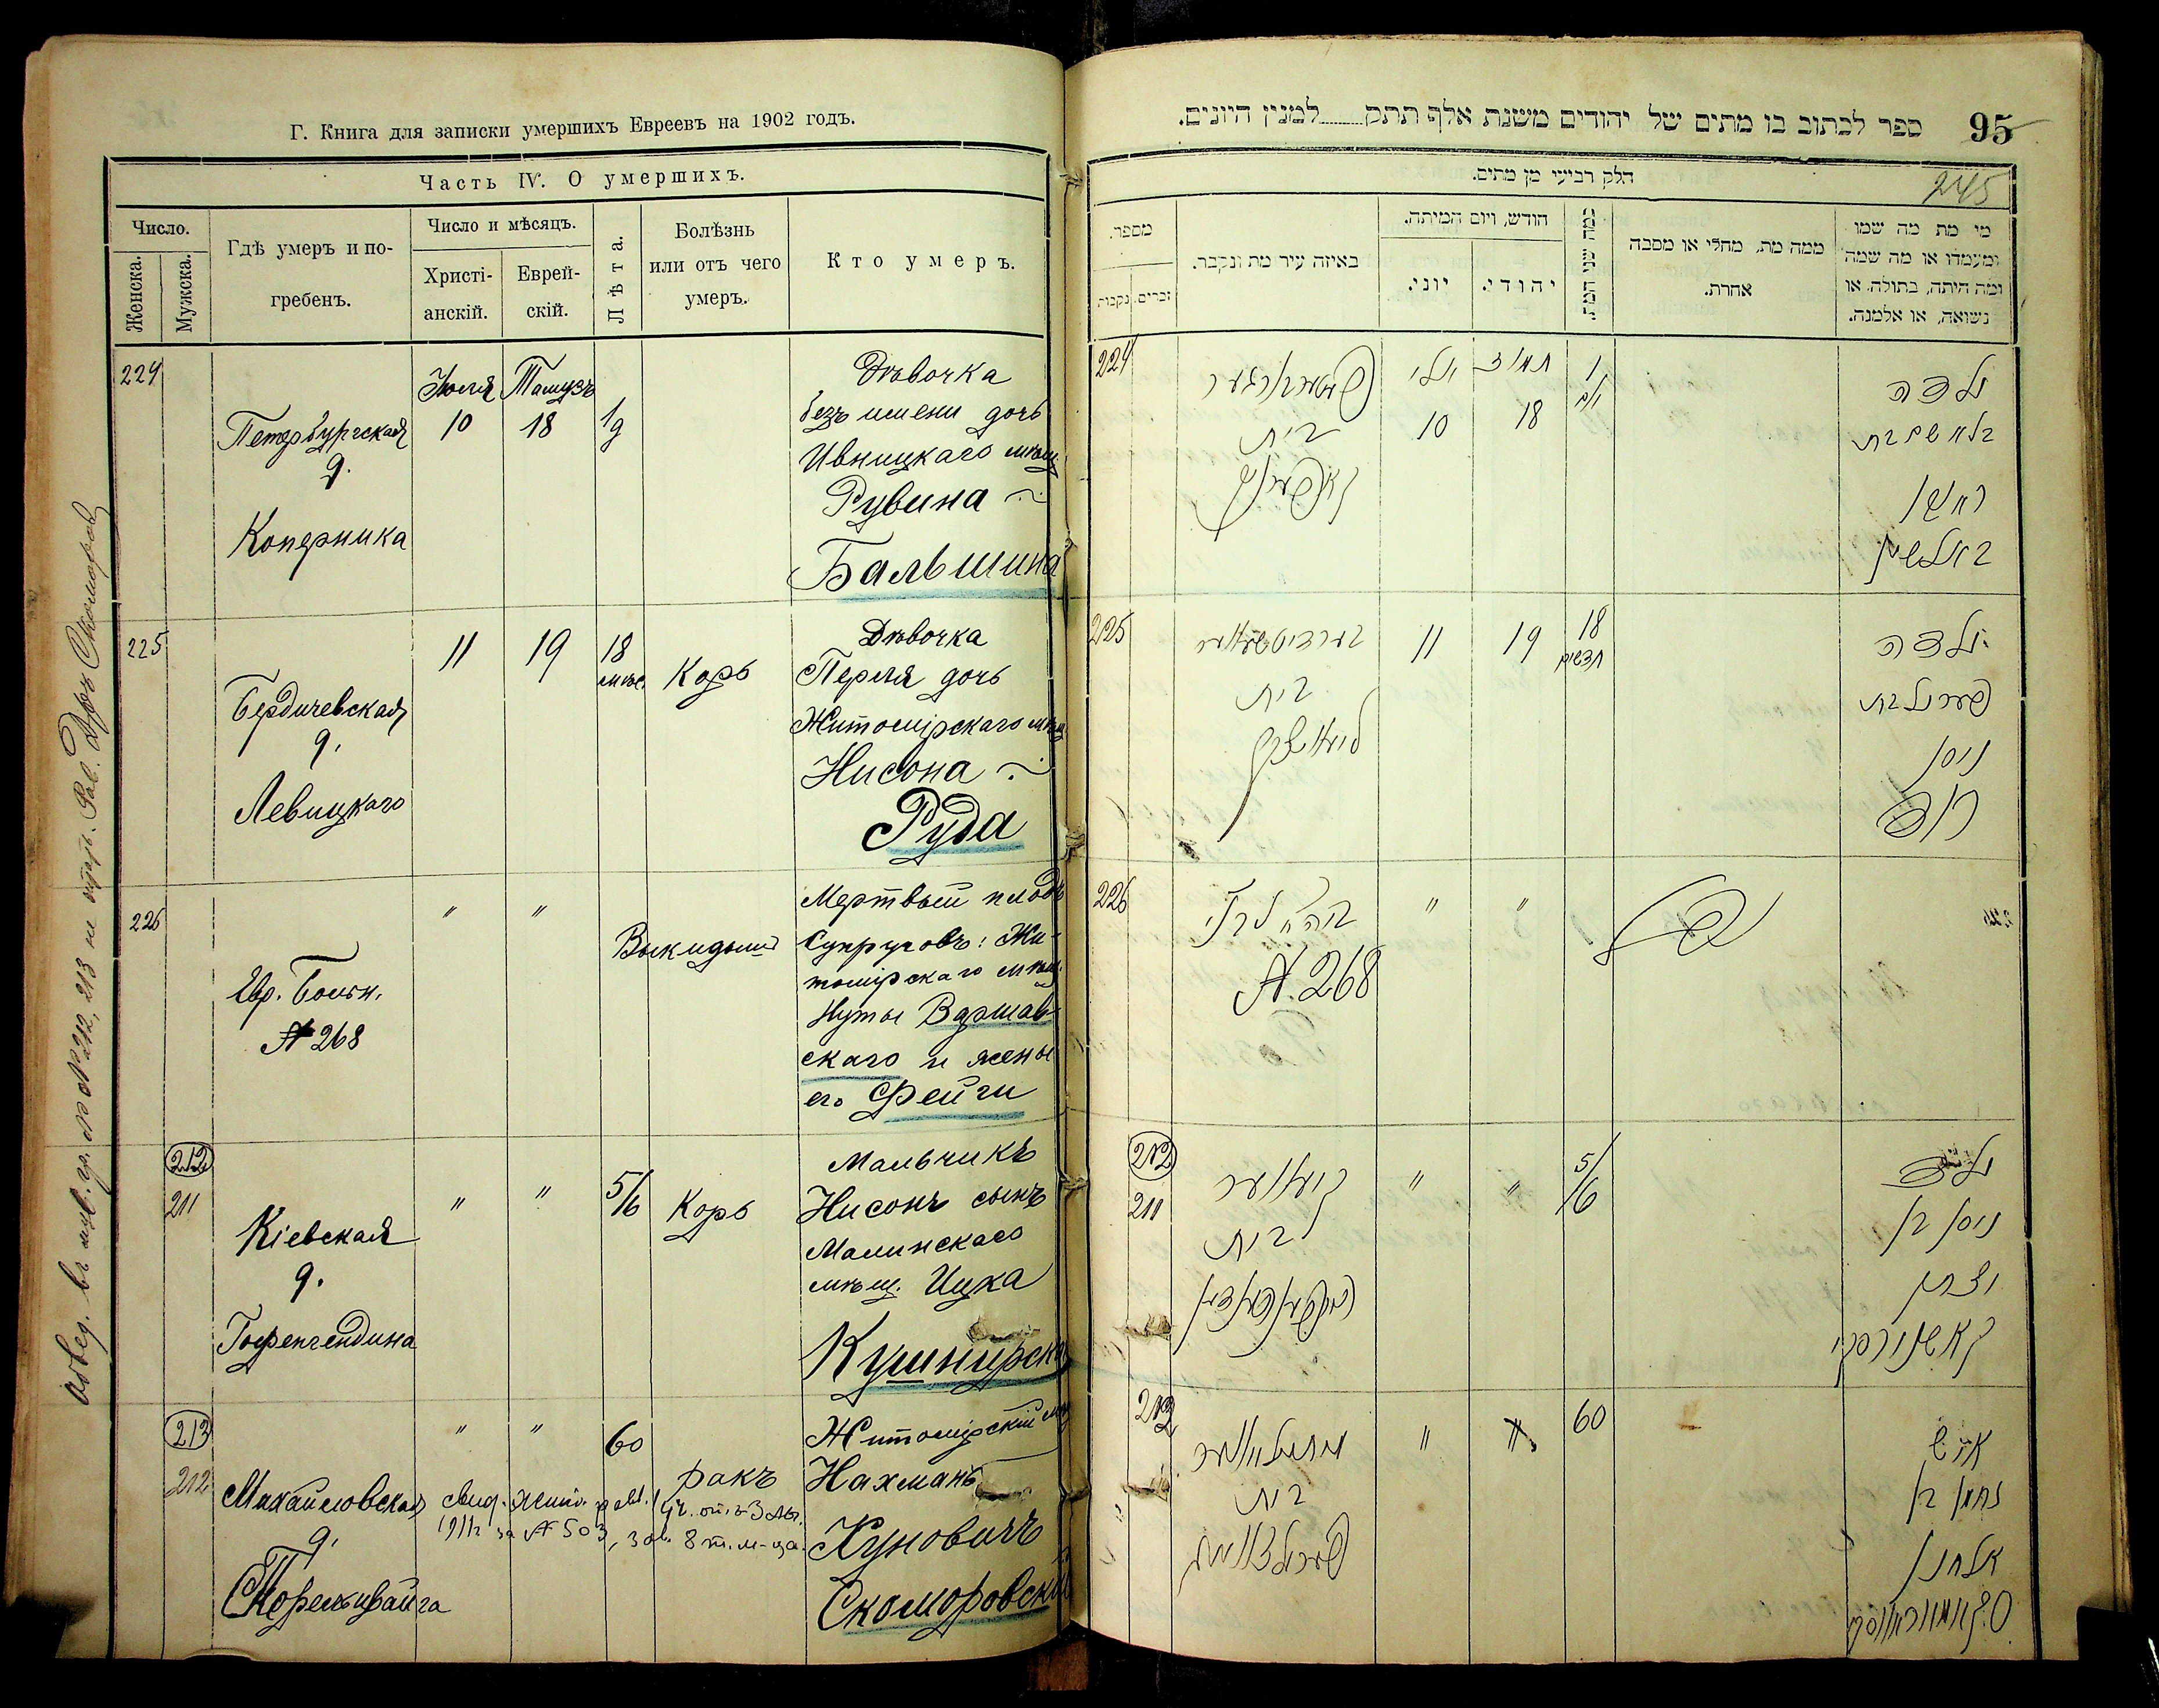 Г. Книга для записки умершихъ Евреевъ на 1902 годъ.
Часть IV. О умершихъ.
Число.
Женска.
Мужска.
Гдѣ умеръ и по-
гребенъ.
Число и мѣсяцъ.
Христі-
анскій.
Еврей-
скій.
Лѣта.
Болѣзнь
или отъ чего
умеръ.
Кто умеръ.
224
Петербургская
д.
Коперника
Юля
10
Тамузъ
18
1/д
Дѣвочка
безъ имени дочь
Ивницкаго мѣщ.
Рувина
Бальшина
225
Бердичевская
д.
Левицкаго
11
19
18
мѣс.
Корь
Дѣвочка
Перля дочь
Житомірскаго мѣщ
Нисона
Руда
226
Евр. Больн.
№ 268
"
"
Выкидышъ
Мертвый плодъ
Супруговъ: Жи-
томірскаго мѣщ.
Нуты Варшав-
скаго и жены
его Фейги
212
211
Кіевская
д.
"
"
5/6
Корь
Мальчикъ
Нисонъ сынъ
Малинскаго
мѣщ. Ицка
Кушнирска
213
212
Михайловская
д.
"
"
60
ракъ
Житомірскій
Нахманъ
Хуновичъ
Скоморовскій
за № 503
95
ספר לכתוב בו מתים של יהודים משנת אלף תתק......למנין היונים.
245
חלק רביעי מן מתים.
מספר.
זכרים.
נקבות
באיזה עיר מת ונקבר.
חודש, ויום המיתה.
יוני.
יהודי.
כמה שני המת.
ממה מת, מחלי או מסבה
אחרת.
מי מת מה שמו
ומעמדו או מה שמה
ומה היתה, בתולה, או
נשואה, או אלמנה.
224
בית
יולי
10
תמוז
18
1
יום
ילדה
בלא שם בת
ראובן
באלשין
225
בית
11
19
18
חדשים
ילדה
פערל בת
ניסן
רודא
226
№ 268
"
"
212
211
בית
"
"
5/6
ילד
ניסן בן
יצחק
קאשנירסקי
212
בית
"
"
60
איש
נחמן בן
אלחנן
סקאמאראווסקי